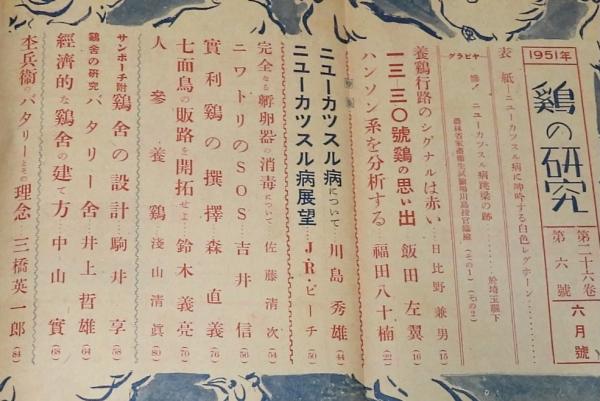 1951年
鷄の研究
第二十六卷
第六號
六月號
表紙―ニューカッスル病に呻吟する白色レグホーン
グラビヤ
慘！ニューカッスル病跳梁の跡…於埼玉縣下
(その1)(その2)
養鷄行路のシグナルは赤い…日比野兼男(15)
一三―三〇號鷄の思い出 飯田左翼(16)
ハンソン系を分析する 福田八十楠(22)
ニューカツスル病について 川島秀雄(44)
ニューカツスル病展望…J・R・ビーチ(50)
完全なる孵卵器の消毒について…佐藤清次(54)
ニワトリのSOS…吉井信(56)
實利鷄の撰擇 森直義(76)
七面鳥の販路を開拓せよ…鈴木義亮(70)
人參養鷄…淺山清眞(80)
サンポーチ附 鷄舍の設計…駒井享(58)
鷄舍の研究 バタリー舍…井上哲雄(64)
經濟的な鷄舍の建て方…中山實(68)
杢兵衞のバタリーとその理念…三橋英一郎(84)